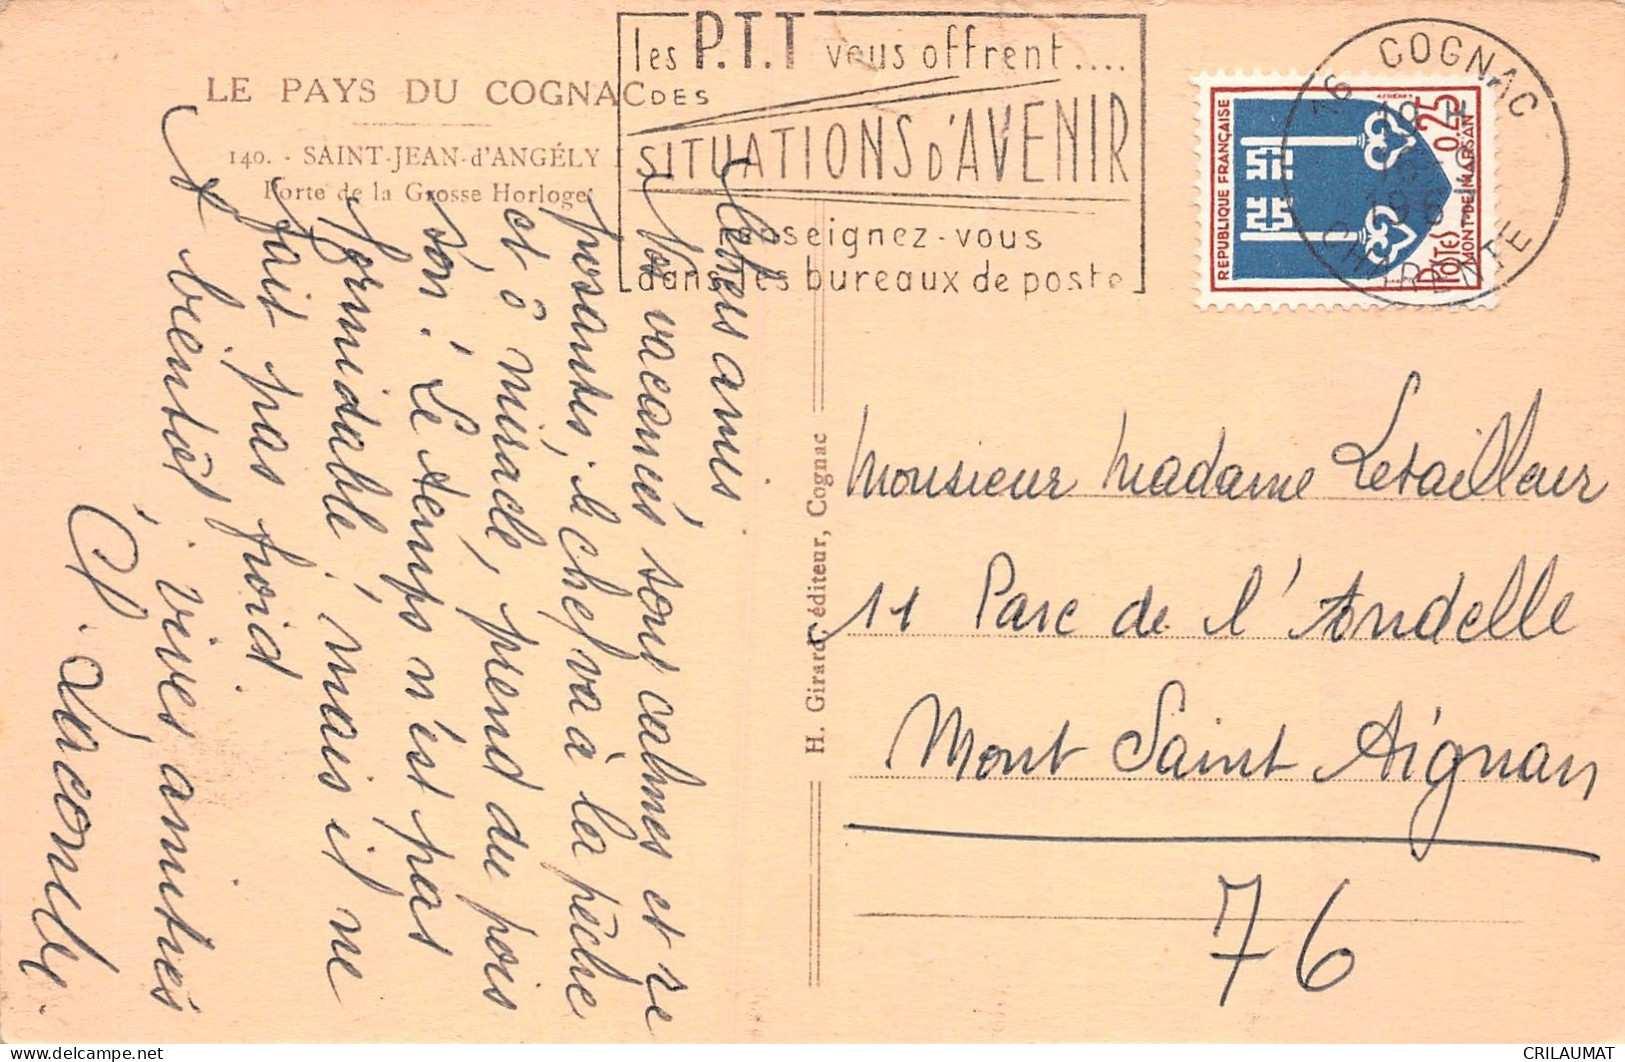 LE PAYS DU COGNAC
140. - SAINT-JEAN-d'ANGÉLY
Porte de la Grosse Horloge
les P.T.T vous offrent....
DES
SITUATIONS D'AVENIR
renseignez-vous
dans les bureaux de poste
16 COGNAC
19 H
CHARENTE
RÉPUBLIQUE FRANÇAISE
0,25
POSTES
MONT-DE-MARSAN
Chers amis
Nos vacances sont calmes et re
posantes, le chef va à la pêche
et ô miracle, prend du pois
son. Le temps n'est pas
formidable, mais il ne
fait pas froid.
A bientôt, vives amitiés
H. Girard, éditeur, Cognac
Monsieur Madame Letailleur
11 Parc de l'Andelle
Mont Saint Aignan
76
CRILAUMAT